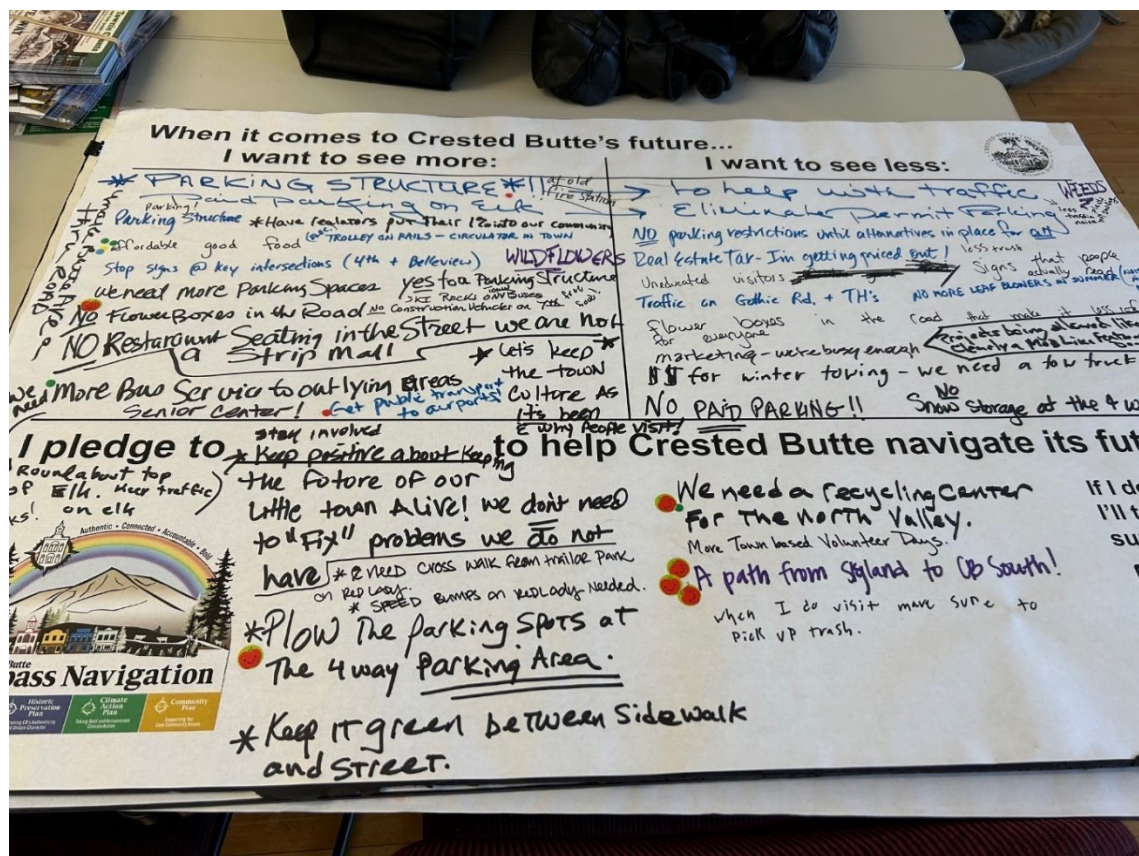 When it comes to Crested Butte's future...
I want to see more:
* PARKING STRUCTURE *!! at old
fire station
and parking on Elk
parking!
Parking Structure * Have realtors put their 1% into our community
affordable good food TROLLEY ON RAILS - CIRCULATOR IN TOWN
Stop signs @ key intersections (4th + Belleview) WILDFLOWERS
We need more Parking Spaces yes to a Parking Structure
SKI RACKS ON Town BUSES
NO Flower Boxes in the Road No Construction Vehicles on
NO Restaraunt Seating in the Street we are not
a Strip Mall
* Let's keep *
the town
Culture As
its been
& why People visit!
we need More Bus Service to outlying areas
Senior Center! Get public transport
to airports!
I want to see less:
to help with traffic
WEEDS
Eliminate permit Parking
NO parking restrictions until alternatives in place for all
Real Estate Tax - Im getting priced out! less trash
Uneducated visitors Signs that people
actually read
Traffic on Gothic Rd. + TH's NO MORE LEAF BLOWERS IN SUMMER
flower boxes in the road that make it less
for everyone
Projects being allowed like
marketing - we're busy enough
$$ for winter towing - we need a tow truck
NO PAID PARKING!! No
Snow Storage at the 4 w
I pledge to to help Crested Butte navigate its fut
stay involved
* Keep positive about keeping
the future of our
little town Alive! we don't need
to "Fix" problems we do not
have
* 2 NEED CROSS WALK FROM trailor PARK
ON RED LADY.
* SPEED BUMPS ON REDLADY Needed.
* Plow The parking Spots at
The 4 way Parking Area.
* Keep it green between Sidewalk
and STreet.
Roundabout top
of Elk. Keep traffic
on elk
ks!
We need a recycling Center
For The North Valley.
More Town based Volunteer Days.
A path from Skyland to CB South!
when I do visit make sure to
pick up trash.
If I do
I'll t
su
Authentic • Connected • Accountable • Bold
Butte
pass Navigation
Historic
Preservation
Plan
Climate
Action
Plan
Community
Plan